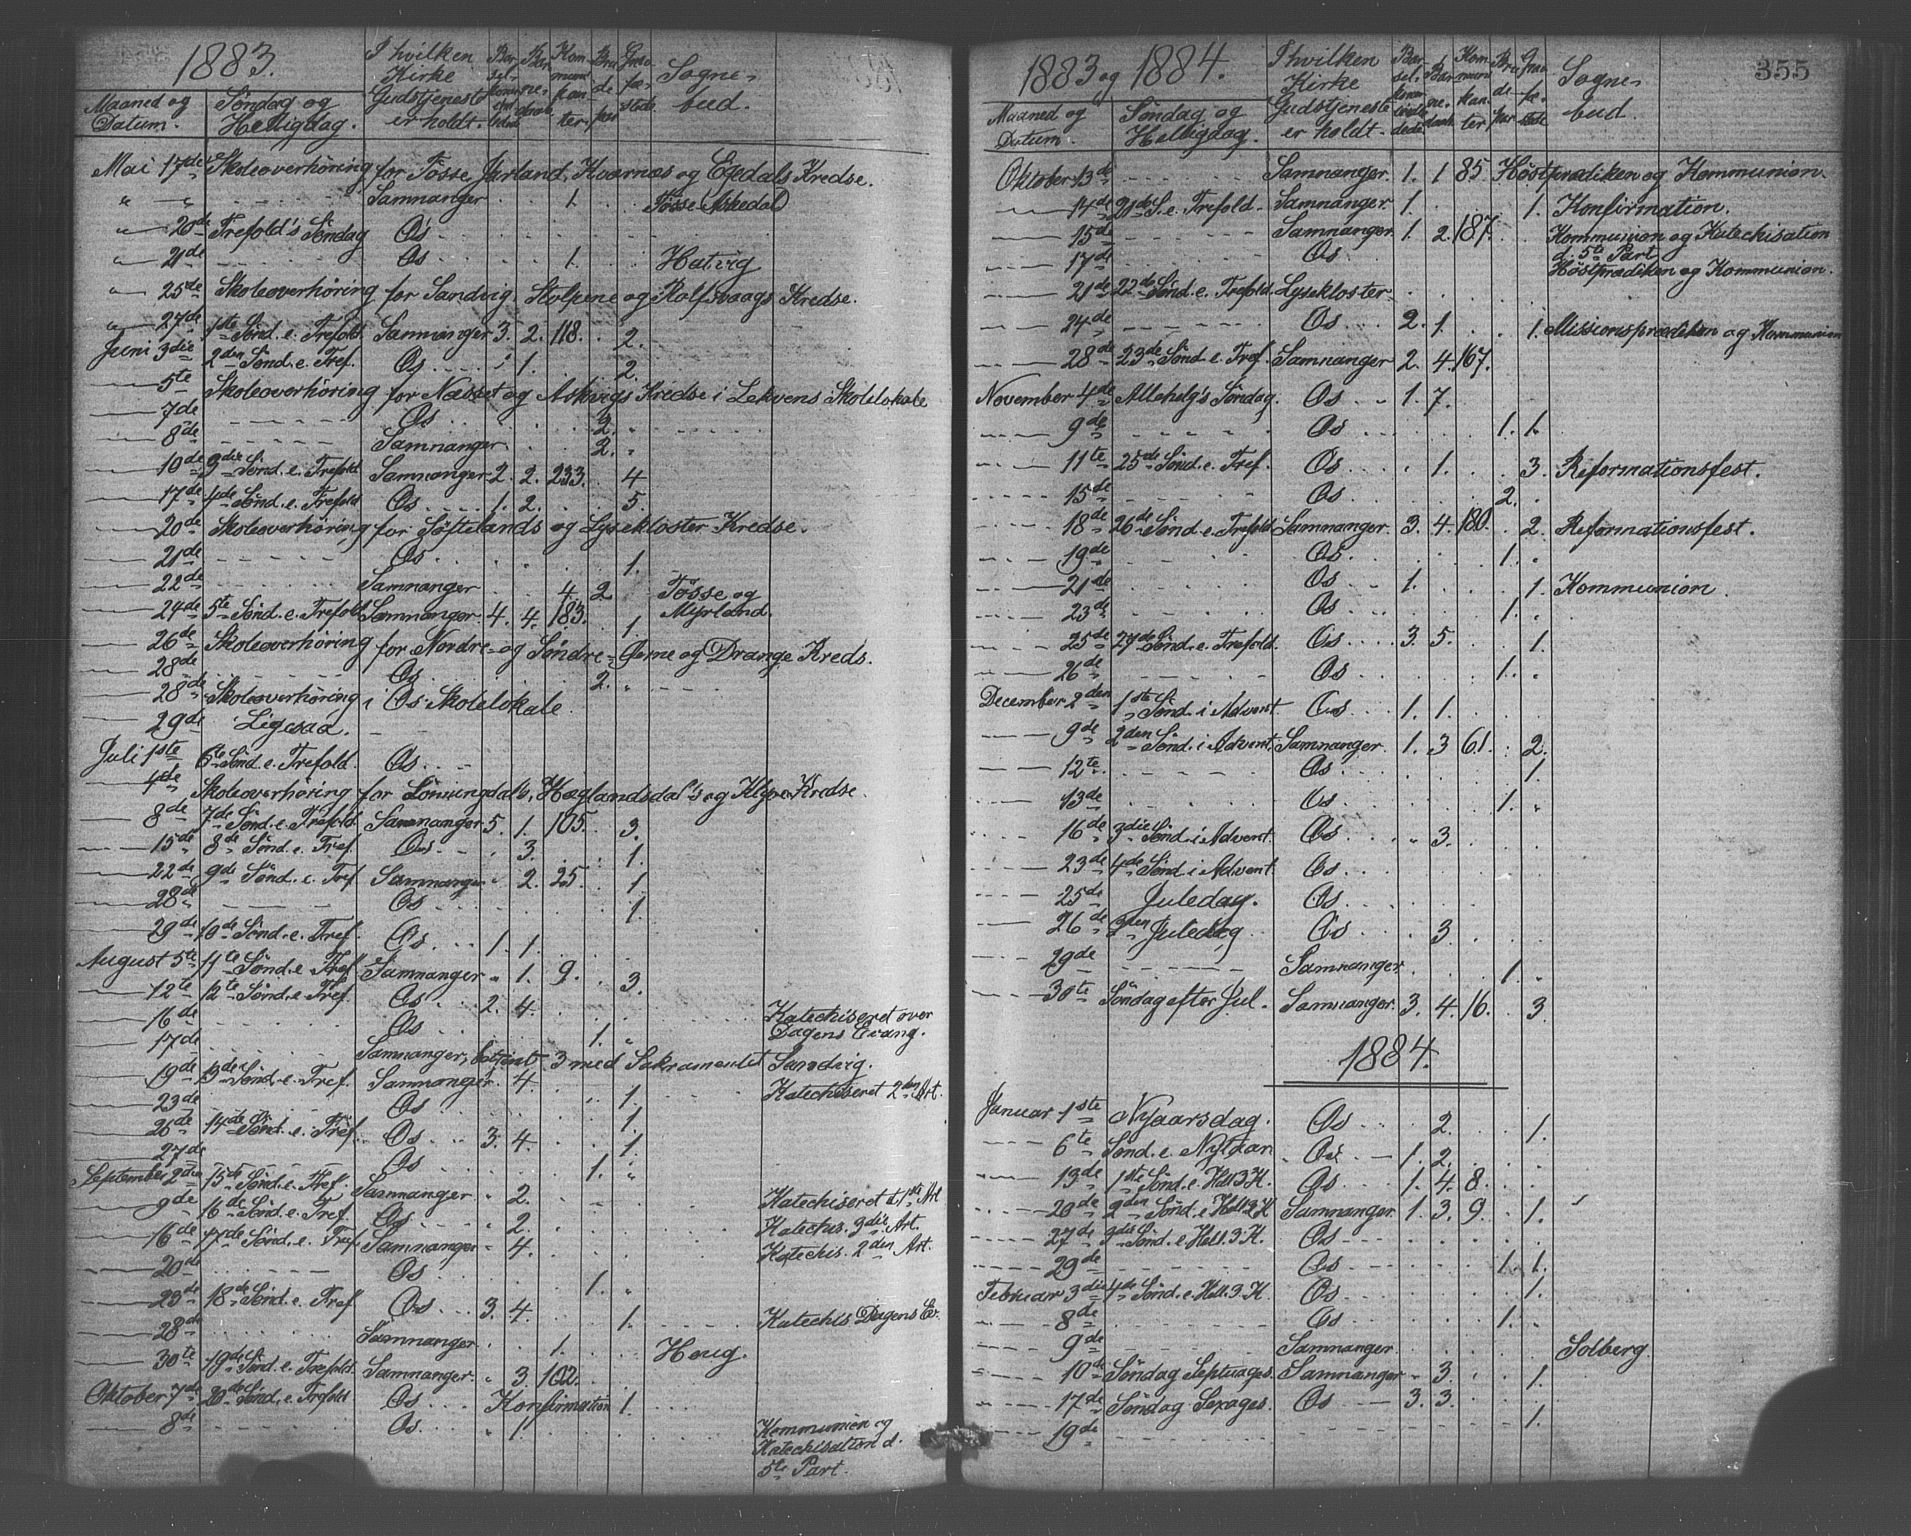 1883.
Maaned og Datum.
Søndag og Helligdag.
I hvilken Kirke Gudstjeneste er holdt.
Kommunikanter.
Sognebud.
Mai 17de Skoleoverhöring for Tösse, Jarland, Kvarnæs og Egedals Kredse.
" " Samnanger 1. Tösse (Askedal)
" 20de Trefold's Söndag Os
" 21de Os 1. Hatvig
" 25de Skoleoverhöring for Sandvig, Stolpene og Rolfsvaags Kredse.
" 27de 1ste Sönd. e. Trefold. Samnanger 3. 2. 118. 2.
Juni 3die 2den Sönd. e. Tref. Os 1. 2.
5te Skoleoverhöring for Næsset og Askvigs Kredse i Lekvens Skolelokale
7de Os 2. "
8de Samnanger 2. "
10de 3die Sönd. e. Trefold Samnanger 2. 2. 233. 4
17de 4de Sönd. e. Trefold Os 1. 2. 5.
20de Skoleoverhöring for Söftelands og Lysekloster Kredse.
21de Os 1.
22de Samnanger 4. 2 Tösse og Myrland.
24de 5te Sönd. e. Trefold Samnanger 4. 4. 183. 1.
26de Skoleoverhöring for Nordre- og Söndre-Öerne og Drange Kreds.
28de Os 2. "
28de Skoleoverhöring i Os Skolelokale
29de Ligesaa.
Juli 1ste 6te Sönd. e. Trefold. Os
4de Skoleoverhöring for Lönningdals, Hæglandsdal's og Klyve Kredse.
8de 7de Sönd. e. Trefold. Samnanger 5. 1. 105. 3.
15de 8de Sönd. e. Tref. Os 3. 1.
22de 9de Sönd. e. Tref. Samnanger " 2. 25. 1.
28de Os 1.
29de 10de Sönd. e. Tref. Os 1. 1.
August 5te 11te Sönd. e. Tref. Samnanger " 1. 9. 3.
12te 12te Sönd. e. Tref. Os 2. 4. Katechiseret over Dagens Evang.
16de Os 1. "
17de Samnanger, betjent 3 med Sakramentet Sandvig.
19de 13de Sönd. e. Tref. Samnanger 4. Katechiseret 2den Art.
23de Os 1.
26de 14de Sönd. e. Tref. Os 3. 4. 1.
27de Os 1. "
September 2den 15de Sönd. e. Tref. Samnanger " 2. Katechiseret d. 1ste Art
9de 16de Sönd. e. Tref. Os " 2. Katechis. 3die Art.
16de 17de Sönd. e. Tref. Samnanger " 4. Katechis. 2den Art.
20de Os 1. "
23de 18de Sönd. e. Tref. Os 3. 4. 1. Katechis Dagens Ev.
28de Samnanger 1. Houg.
30te 19de Sönd. e. Trefold. Samnanger " 3 102.
Oktober 7de 20de Sönd. e. Trefold Os Konfirmation 1.
8de Os " 1. Kommunion og Katechisation d. 5te Part.
355
1883 og 1884.
Maaned og Datum.
Söndag og Helligdag.
I hvilken Kirke Gudstjeneste er holdt.
Kommunikanter
Sognebud.
Oktober 13de Samnanger. 1. 1 85 Höstprædiken og Kommunion.
14de 21de S. e. Trefold. Samnanger. 1. 1. Konfirmation.
15de Samnanger. 1. 2. 187. Kommunion og Katechisation d. 5te Part
17de Os Höstprædiken og Kommunion.
21de 22de Sönd. e. Trefold. Lysekloster
24de Os 2. 1. 1. Missionsprædiken og Kommunion
28de 23de Sönd. e. Tref. Samnanger 2. 4. 167.
November 4de Allehelg's Söndag. Os 1. 7.
9de Os 1. 1.
11te 25de Sönd. e. Tref. Os 1. 3. Reformationsfest.
15de Os 2.
18de 26de Sönd. e. Trefold Samnanger. 3. 4. 180. 2. Reformationsfest.
19de Os 1.
21de Os 1. 1. Kommunion.
23de Os 1.
25de 27de Sönd. e. Trefold. Os 3. 5. 1.
26de Os 1.
December 2den 1ste Sönd. i Advent Os 1. 1.
9de 2den Sönd. i Advent. Samnanger. 1. 3 61. 2.
12te Os 1.
13de Os 1. "
16de 3die Sönd. i Advent. Os " 3.
23de 4de Sönd. i Advent Os
25de Juledag. Os
26de 2den Juledag Os 3.
29de Samnanger 1.
30te Söndag efter Jul. Samnanger 3. 4. 16. 3.
1884.
Januar 1ste Nyaarsdag. Os 2. 1.
6te Sönd. e. Nytaar Os 1. 2.
13de 1ste Sönd. e. Hell. 3 K. Os 1. 4. 8.
20de 2den Sönd. e. Hell. 3 K Samnanger 1. 3. 9. 1.
27de 3die Sönd. e. Hell. 3 K. Os
29de Os 1. 1.
Februar 3die 4de Sönd. e. Hell. 3 K. Os 1.
8de Os 1.
9de Samnanger Solberg
10de Söndag Septuages. Samnanger " 3. 1.
17de Söndag Sexages. Os 3. 3.
19de 1.